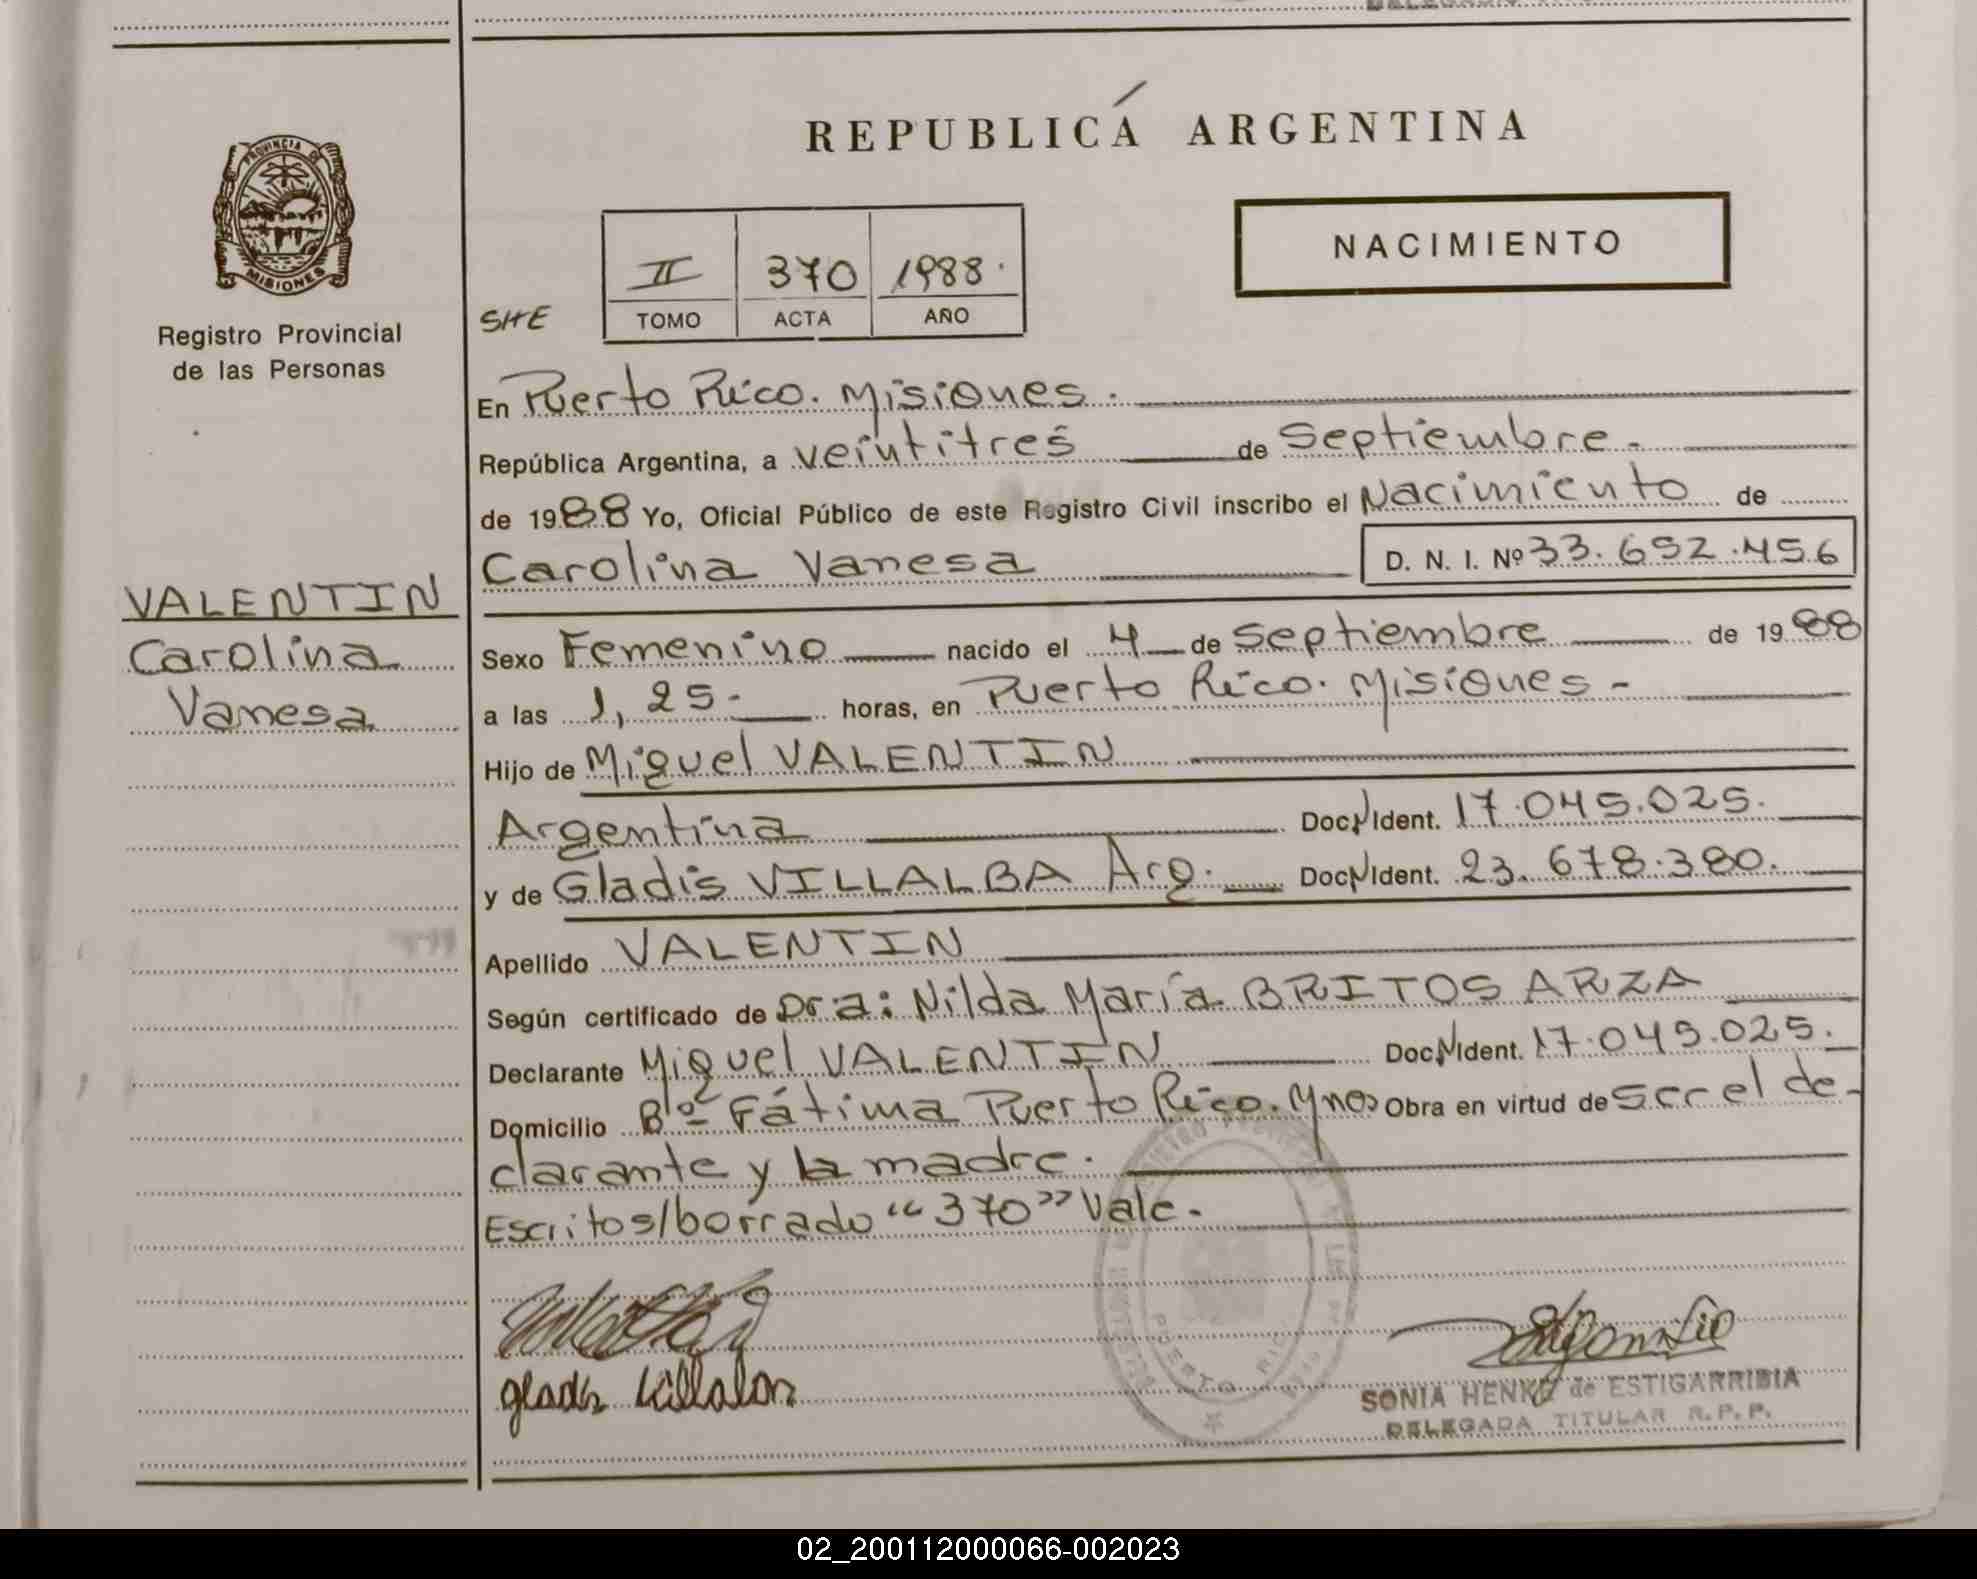 REPUBLICA ARGENTINA
PROVINCIA DE
MISIONES
Registro Provincial
de las Personas
NACIMIENTO
II 370 1988.
TOMO ACTA AÑO
SHE
En Puerto Rico. Misiones.
República Argentina, a veintitres de Septiembre.
de 1988 Yo, Oficial Público de este Registro Civil inscribo el Nacimiento de
Carolina Vanesa D. N. I. Nº 33.692.456
VALENTIN
Carolina
Vanesa
Sexo Femenino nacido el 4 de Septiembre de 1988
a las 1,25- horas, en Puerto Rico. Misiones-
Hijo de Miguel VALENTIN
Argentina Doc. N Ident. 17.045.025.
y de Gladis VILLALBA Arg. Doc. N Ident. 23.678.380.
Apellido VALENTIN
Según certificado de Dra: Nilda María BRITOS ARZA
Declarante Miguel VALENTIN Doc. N Ident. 17.045.025.
Domicilio Bº Fátima Puerto Rico. Mnes Obra en virtud de ser el de-
clarante y la madre.
Escritos/borrado "370" Vale.
gladis Villalba
PUERTO RICO
SONIA HENKE de ESTIGARRIBIA
DELEGADA TITULAR R.P.P.
02_200112000066-002023